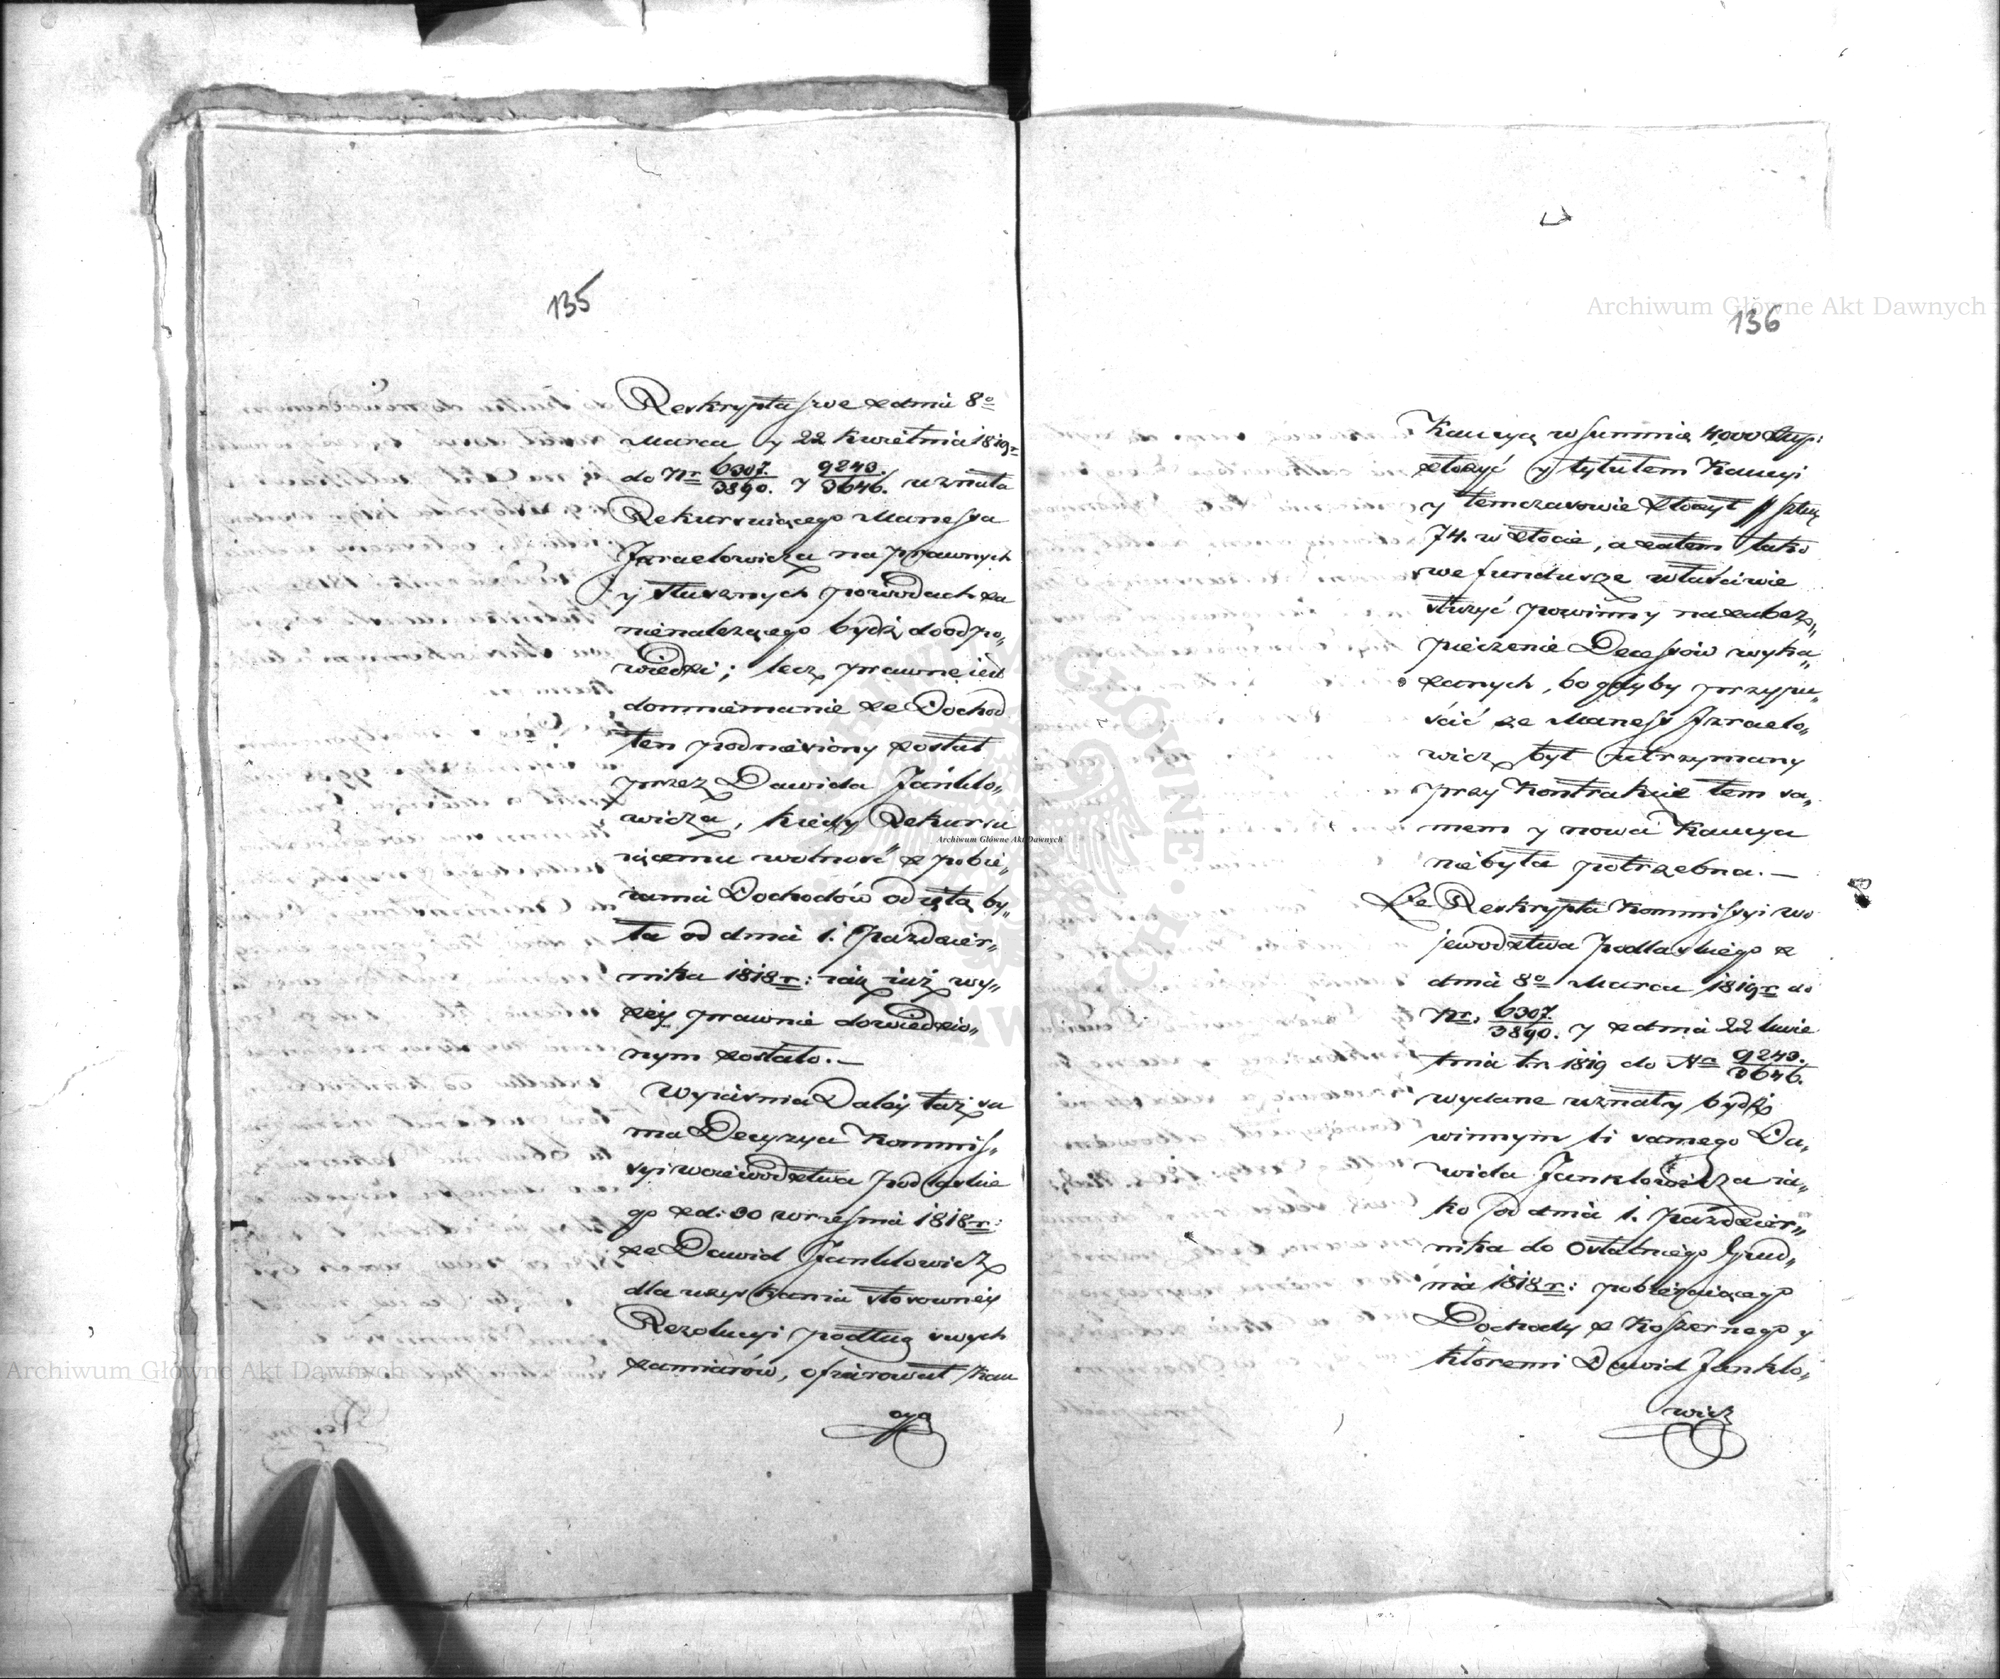 135
Reskrypta swe z dnia 8º
Marca y 22 Kwietnia 1819 r
do Nr 6307./3890. y 9243./3646. uznała
Rekursuiącego Manessa
Izraelowicza na prawnych
y słusznych powodach za
nienalezącego bydź do odpo„
wiedzi; lecz prawne iest
domniemanie ze Dochod
ten podniesiony został
przez Dawida Jankło„
wicza, kiedy Rekursu
iącemu wolność z pobie„
rania Dochodów odiętą by„
ła od dnia 1. Pazdzier„
nika 1818 r: iak iuż wy„
zey prawnie dowiedzio„
nym zostało.—
Wyiaśnia Daley taż sa
ma Decyzya Kommis„
syi Woiewodztwa Podlaskie
go z d: 30 Września 1818 r:
ze Dawid Janklowicz
dla uzyskania stosowney
Rezolucyi podług swych
zamiarów, ofiarował Kau
cyą
136
Kaucyą w summie 4,000 Złłp:
złożyć y tytułem Kaucyi
y temczasowie złożył # sztuk
74. w złocie, a zatem tako
we fundusze właściwie
służyć powinny na zabez„
pieczenie Decessów wyka„
zanych, bo gdyby przypu„
ścić ze Maness Izraelo„
wicz był utrzymany
przy Kontrakcie tem sa„
mem y nowa Kaucya
niebyła potrzebna.—
Ze Reskrypta Kommissyi Wo
jewodztwa Podlaskiego z
dnia 8º Marca 1819 r do
Nr. 6307./3890. y z dnia 22 Kwie
tnia t.r. 1819 do Nr 9243./3646.
wydane uznały bydź
winnym li samego Da„
wida Janklowicza ia„
ko od dnia 1. Pazdzier„
nika do ostatniego Grud„
nia 1818 r: pobieraiącego
Dochody z Koszernego y
któremi Dawid Janklo„
wicz
Archiwum Główne Akt Dawnych
Archiwum Główne Akt Dawnych
Archiwum Główne Akt Dawnych